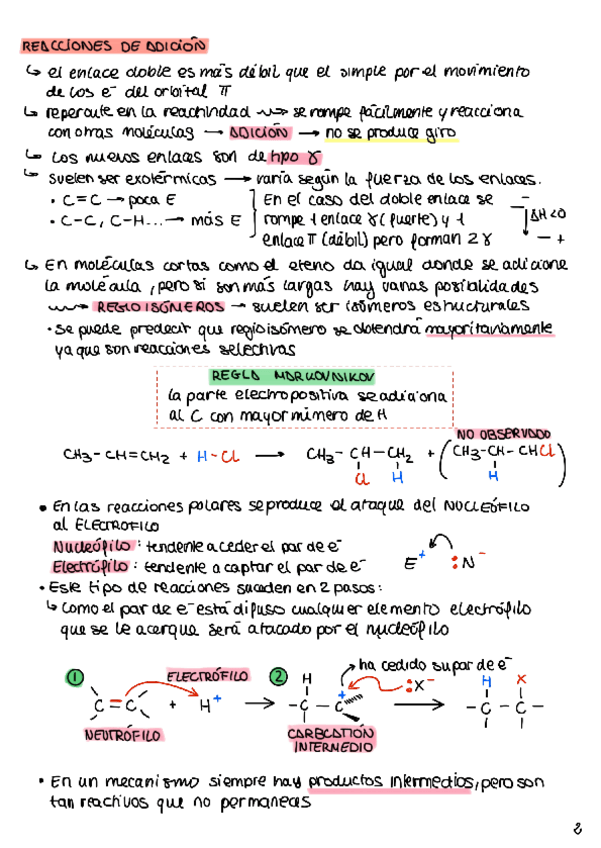 REACCIONES DE ADICIÓN
↳ el enlace doble es más débil que el simple por el movimiento
de los e⁻ del orbital π
↳ repercute en la reactividad ⟿ se rompe fácilmente y reacciona
con otras moléculas → ADICIÓN → no se produce giro
↳ Los nuevos enlaces son de tipo γ
↳ suelen ser exotérmicas → varía según la fuerza de los enlaces.
· C=C → poca E
· C-C, C-H... → más E
En el caso del doble enlace se
rompe 1 enlace γ (fuerte) y 1
enlace π (débil) pero forman 2 γ
ΔH<0
↳ En moléculas cortas como el eteno da igual donde se adicione
la molécula, pero si son más largas hay varias posibilidades
⟿ REGIOISÓMEROS → suelen ser isómeros estructurales
· Se puede predecir que regioisómero se obtendrá mayoritariamente
ya que son reacciones selectivas
REGLA MARKOVNIKOV
La parte electropositiva se adiciona
al C con mayor número de H
NO OBSERVADO
CH₃-CH=CH₂ + H-Cl → CH₃-CH-CH₂ + (CH₃-CH-CHCl)
Cl H H
• En las reacciones polares se produce el ataque del NUCLEÓFILO
al ELECTROFILO
Nucleófilo: tendente a ceder el par de e⁻
Electrófilo: tendente a captar el par de e⁻
E⁺ :N⁻
• Este tipo de reacciones suceden en 2 pasos:
↳ Como el par de e⁻ está difuso cualquier elemento electrófilo
que se le acerque será atacado por el nucleófilo
ha cedido su par de e⁻
① ELECTRÓFILO ② H :X⁻ H X
C=C + H⁺ → -C-C⁺ → -C-C-
NEUTRÓFILO CARBCATIÓN
INTERMEDIO
• En un mecanismo siempre hay productos intermedios, pero son
tan reactivos que no permaneces
2